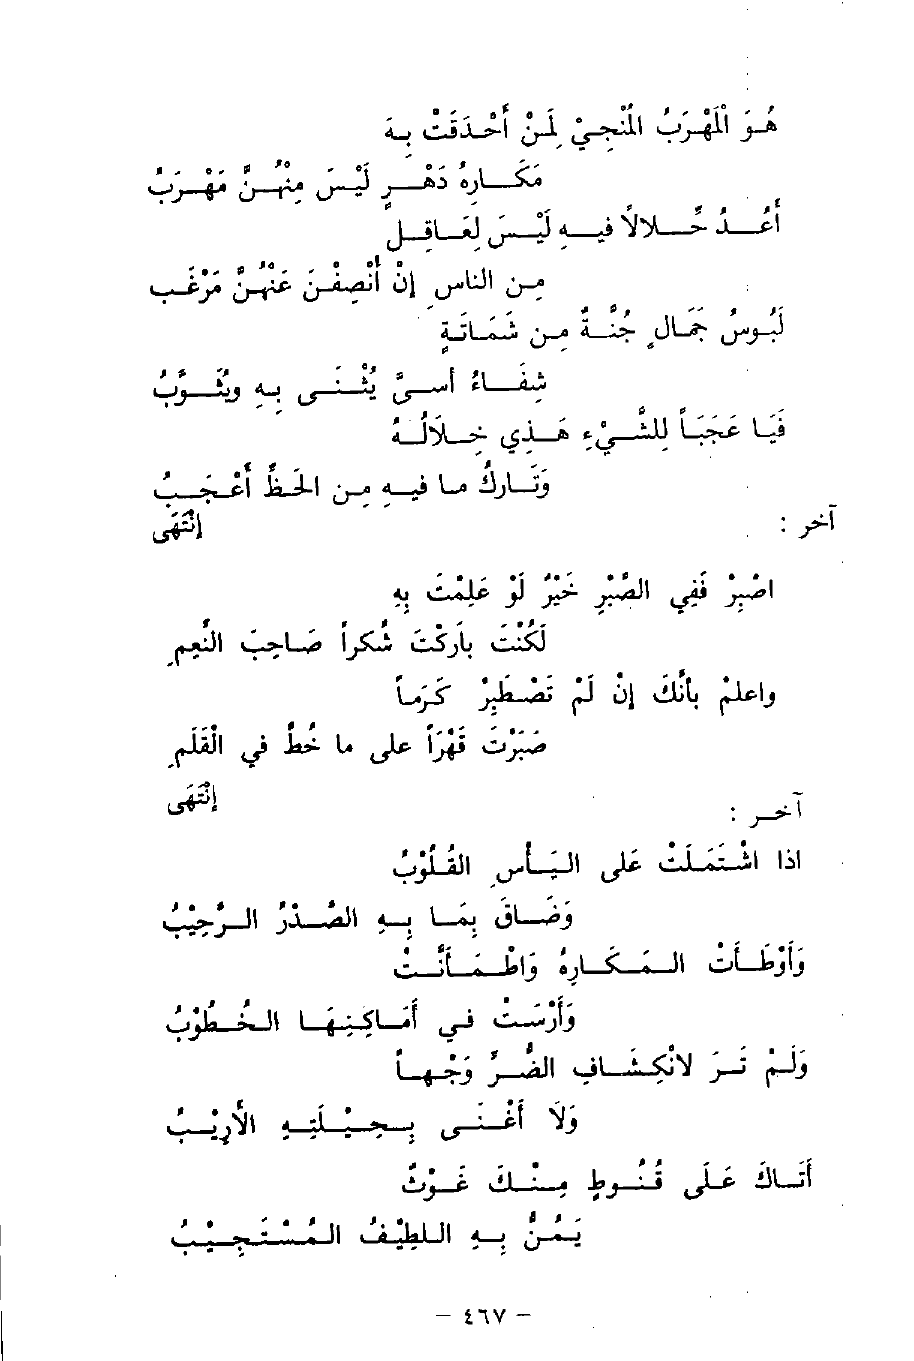 هُوَ الْمَهْرَبُ الْمُنْجِيْ لِمَنْ أَحْدَقَتْ بِهَ
مَكَارِهُ دَهْرٍ لَيْسَ مِنْهُنَّ مَهْرَبُ
أَعُدُ خِّلالاً فيهِ لَيْسَ لِعَاقِلٍ
مِن الناسِ إنْ أُنْصِفْنَ عَنْهُنَّ مَرْغَبِ
لَبُوسُ جَمَالٍ جُنَّةٌ مِن شَمَاتَةٍ
شِفَاءُ أسىً يُثْنَى بِهِ ويُثَوَّبُ
فَيَا عَجَبَاً لِلشَّيْءِ هَذِي خِلَالُهُ
وَتَارِكُ ما فيهِ مِن الحَظِّ أَعْجَبُ
آخر :
إنْتَهَى
اصْبِرْ فَفِي الصَّبْرِ خَيْرٌ لَوْ عَلِمْتَ بِهِ
لَكُنْتَ بارَكْتَ شُكراً صَاحِبَ النِّعِمِ
واعلمْ بأنَّكَ إنْ لَمْ تَصْطَبِرْ كَرَمَاً
صَبَرْتَ قَهْرَاً على ما خُطَّ في الْقَلَمِ
إنْتَهَى
آخر :
اذا اشْتَمَلَتْ عَلى اليَأسِ القُلُوْبُ
وَضَاقَ بِمَا بِهِ الصَّدْرُ الرَّحِيْبُ
وَأَوْطَأَتْ المَكَارِهُ وَاطْمَأَنَّتْ
وَأَرْسَتْ في أَمَاكِنِهَا الخُطُوْبُ
وَلَمْ تَرَ لانْكِشَافِ الضُّرِّ وَجْهاً
وَلَا أَغْنَى بِحِيْلَتِهِ الأَرِيْبُ
أَتَاكَ عَلَى قُنُوطٍ مِنْكَ غَوْثٌ
يَمُنُّ بِهِ اللطِيْفُ المُسْتَجِيْبُ
– ٤٦٧ –